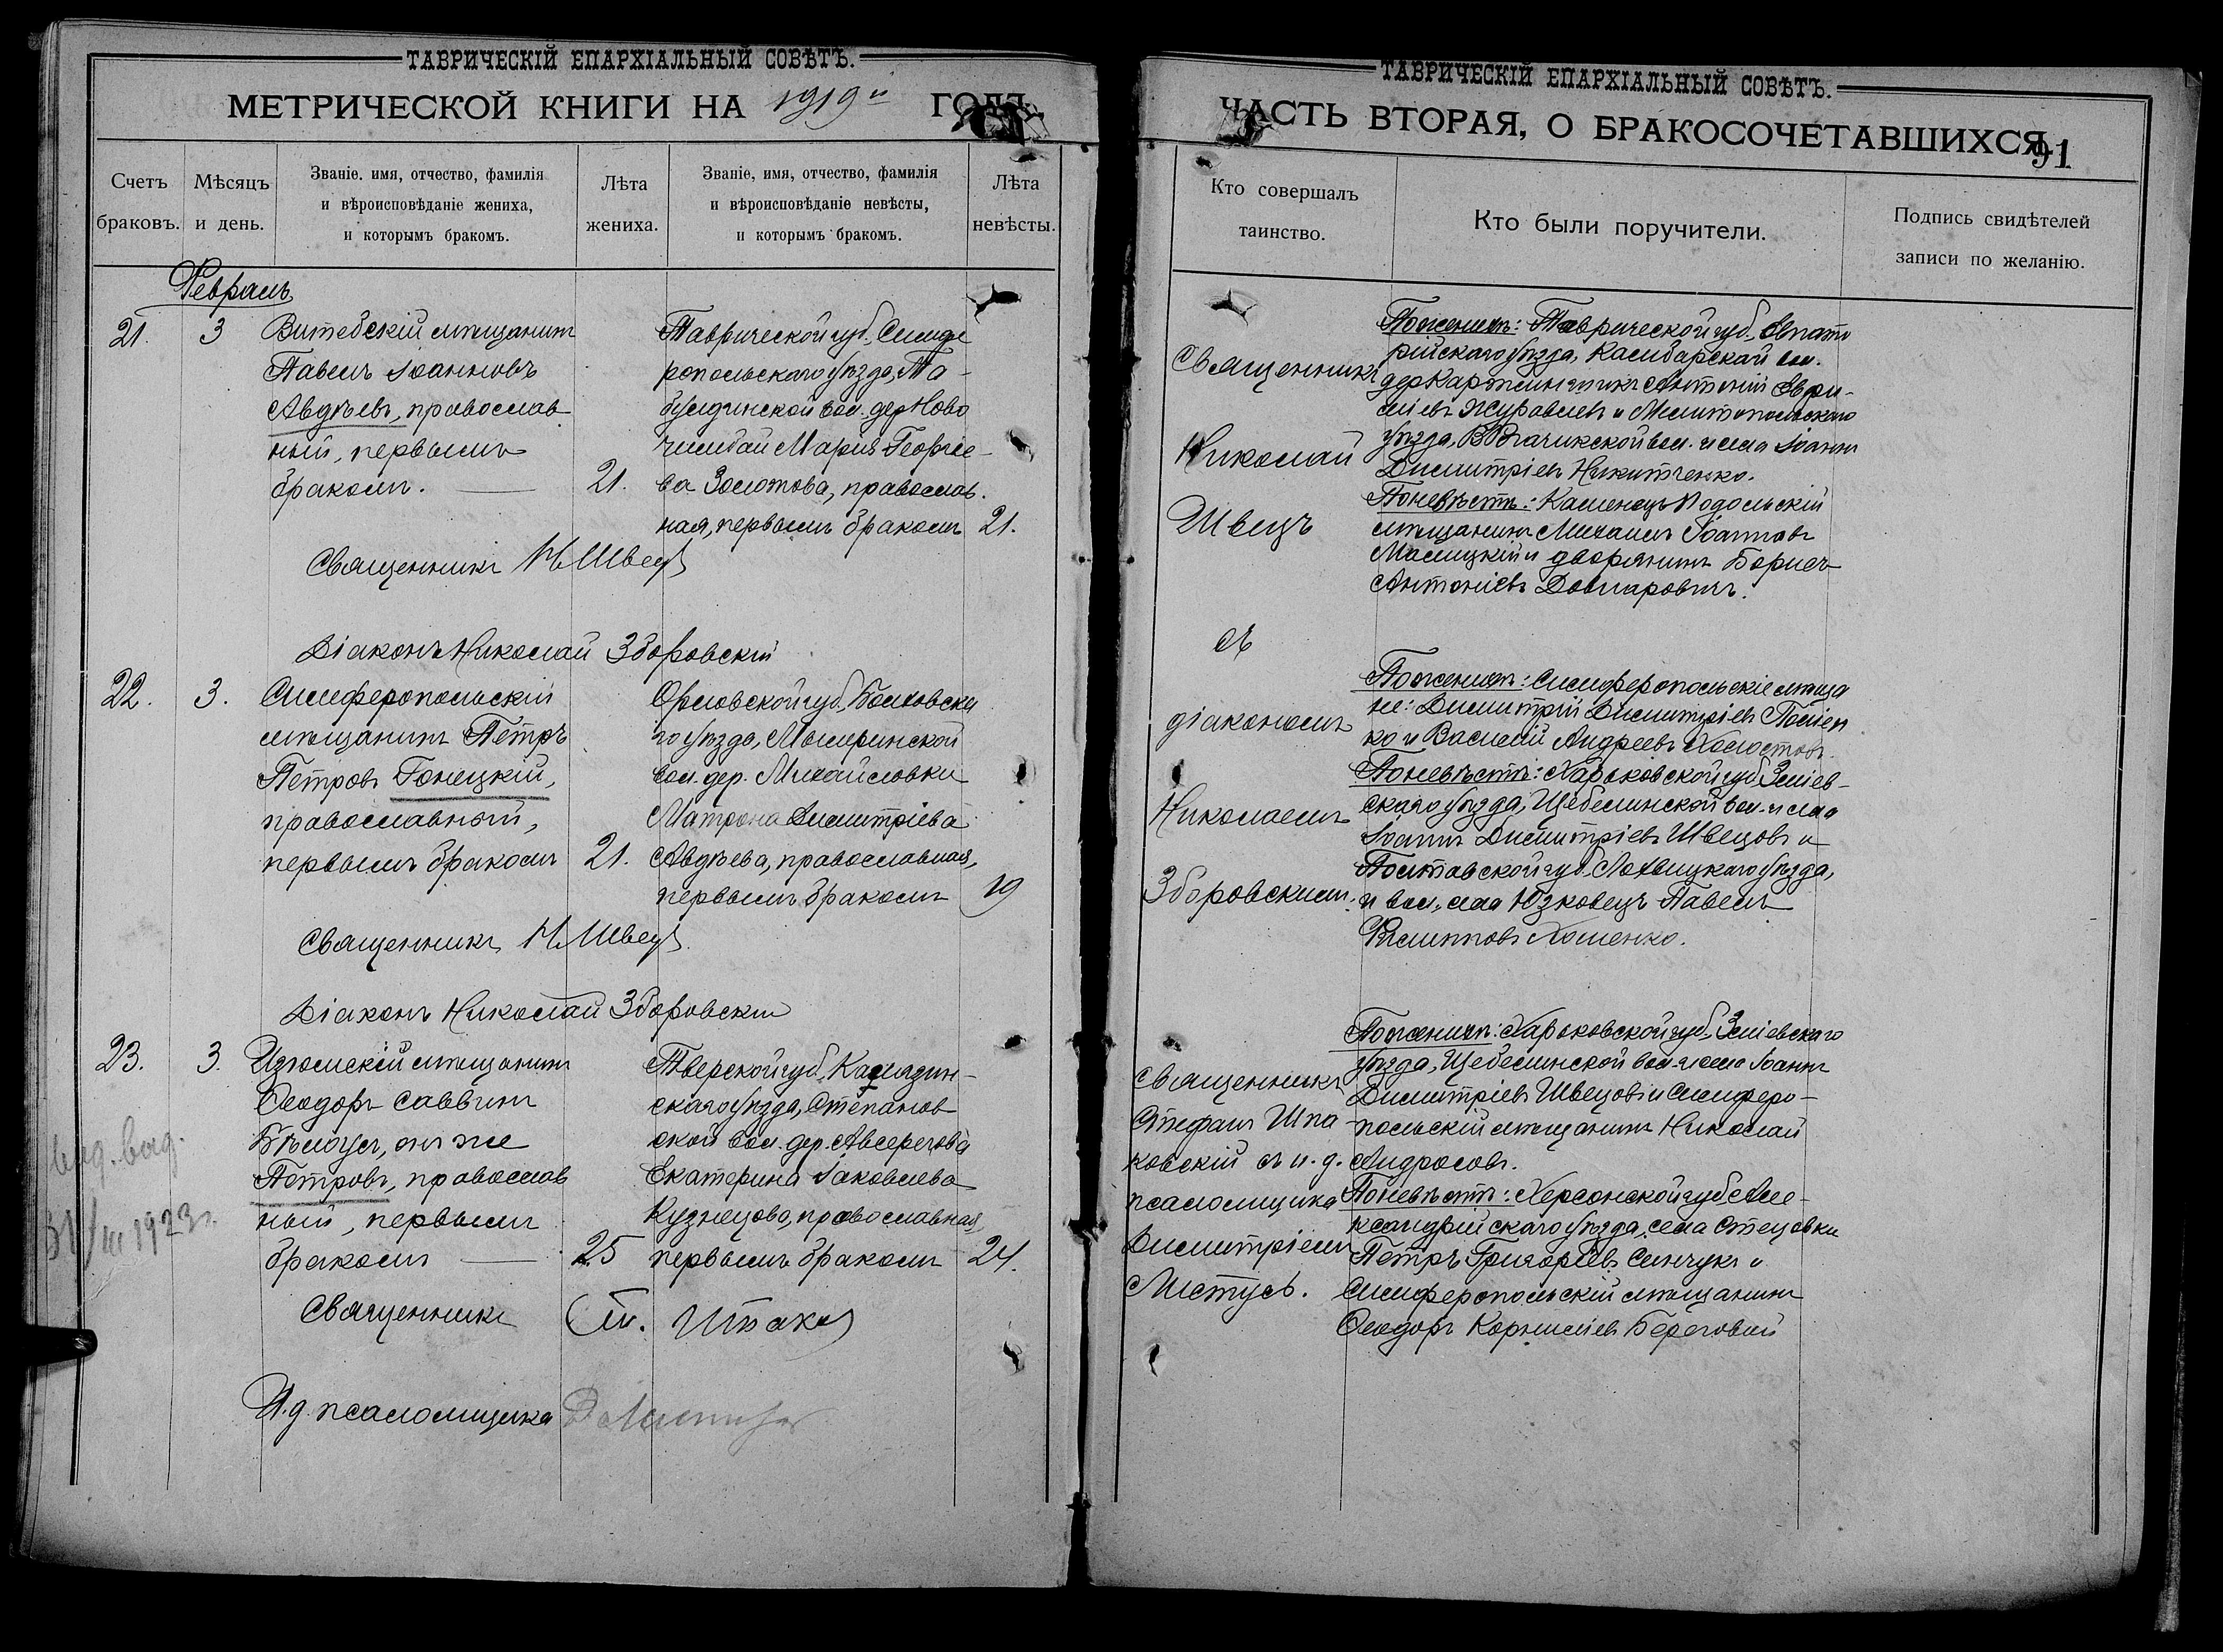 ТАВРИЧЕСКІЙ ЕПАРХІАЛЬНЫЙ СОВѢТЪ.
МЕТРИЧЕСКОЙ КНИГИ НА 1919 ГОДЪ.
Счетъ браковъ.
Мѣсяцъ и день.
Званіе, имя, отчество, фамилія
и вѣроисповѣданіе жениха,
и которымъ бракомъ.
Лѣта жениха.
Званіе, имя, отчество, фамилія
и вѣроисповѣданіе невѣсты,
и которымъ бракомъ.
Лѣта невѣсты.
Февраль
21. 3
Витебскій мѣщанинъ
Павелъ Іоанновъ
Авдѣевъ, православ
ный, первымъ
бракомъ. — 21.
Таврической губ., Симфе
ропольскаго уѣзда, Та-
булдинской вол. дер Ново
чилибай Марія Георгіе-
ва Золотова, православ.
ная, первымъ бракомъ 21.
Священникъ Н Швецъ
Діаконъ Николай Зборовскій
22. 3.
Симферопольскій
мѣщанинъ Петръ
Петровъ Гонецкій,
православный,
первымъ бракомъ 21.
Орловской губ., Болховска
го уѣзда,
вол. дер. Михайловки
Матрона Димитріева
Авдѣева, православная,
первымъ бракомъ 19
Священникъ Н Швецъ
Діаконъ Николай Зборовскій
23. 3.
Изюмскій мѣщанинъ
Ѳеодоръ Саввинъ
Бѣлоусъ, онъ же
Петровъ, православ
ный, первымъ
бракомъ — 25
Тверской губ., Калязин-
скаго уѣзда, Степанов
ской вол. дер.
Екатерина Іаковлева
Кузнецова, православная,
первымъ бракомъ 24.
Священникъ Ст. Шпак
И. д. псаломщика Д Листусъ
выд.
31/III 1923 г.
ТАВРИЧЕСКІЙ ЕПАРХІАЛЬНЫЙ СОВѢТЪ.
ЧАСТЬ ВТОРАЯ, О БРАКОСОЧЕТАВШИХСЯ.
91
Кто совершалъ
таинство.
Кто были поручители.
Подпись свидѣтелей
записи по желанію.
Священникъ
Николай
Швецъ
съ
діакономъ
Николаемъ
Зборовскимъ.
По женихѣ: Таврической губ., Евпато
рійскаго уѣзда, Камбарской вол.
дер Антоній
Журавлевъ и Мелитопольскаго
уѣзда, В Рогачикской вол. и села Іоаннъ
Димитріевъ Никитченко.
По невѣстѣ: Каменецъ Подольскій
мѣщанинъ Михаилъ Іоанновъ
Малицкій и дворянинъ Борисъ
Антоніевъ
По женихѣ: Симферопольскіе мѣща
не: Димитрій Димитріевъ
ко и Василій Андреевъ Холостовъ.
По невѣстѣ: Харьковской губ Зміев-
скаго уѣзда, Щебелинской вол. и села
Іоаннъ Димитріевъ Швецовъ и
Полтавской губ. Лохвицкаго уѣзда,
и вол., села Юзковецъ Павелъ
Филипповъ Хоменко.
Священникъ
Стефанъ Шпа
ковскій съ и. д.
псаломщика
Димитріемъ
Листусъ.
По женихѣ: Харьковской губ., Зміевскаго
уѣзда, Щебелинской вол. и села Іоаннъ
Димитріевъ Швецовъ и Симферо-
польскій мѣщанинъ Николай
Андросовъ.
По невѣстѣ: Херсонской губ Але-
ксандрійскаго уѣзда, села Стецовки
Петръ Григоріевъ Синчукъ и
Симферопольскій мѣщанинъ
Ѳеодоръ Корниліевъ Береговой